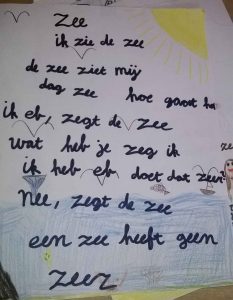 Zee
ik zie de zee
de zee ziet mij
dag zee hoe gaat
ik eb, zegt de zee
wat heb je zeg ik
ik heb eb, doet dat zeer
Nee, zegt de zee
een zee heeft geen
zeer.